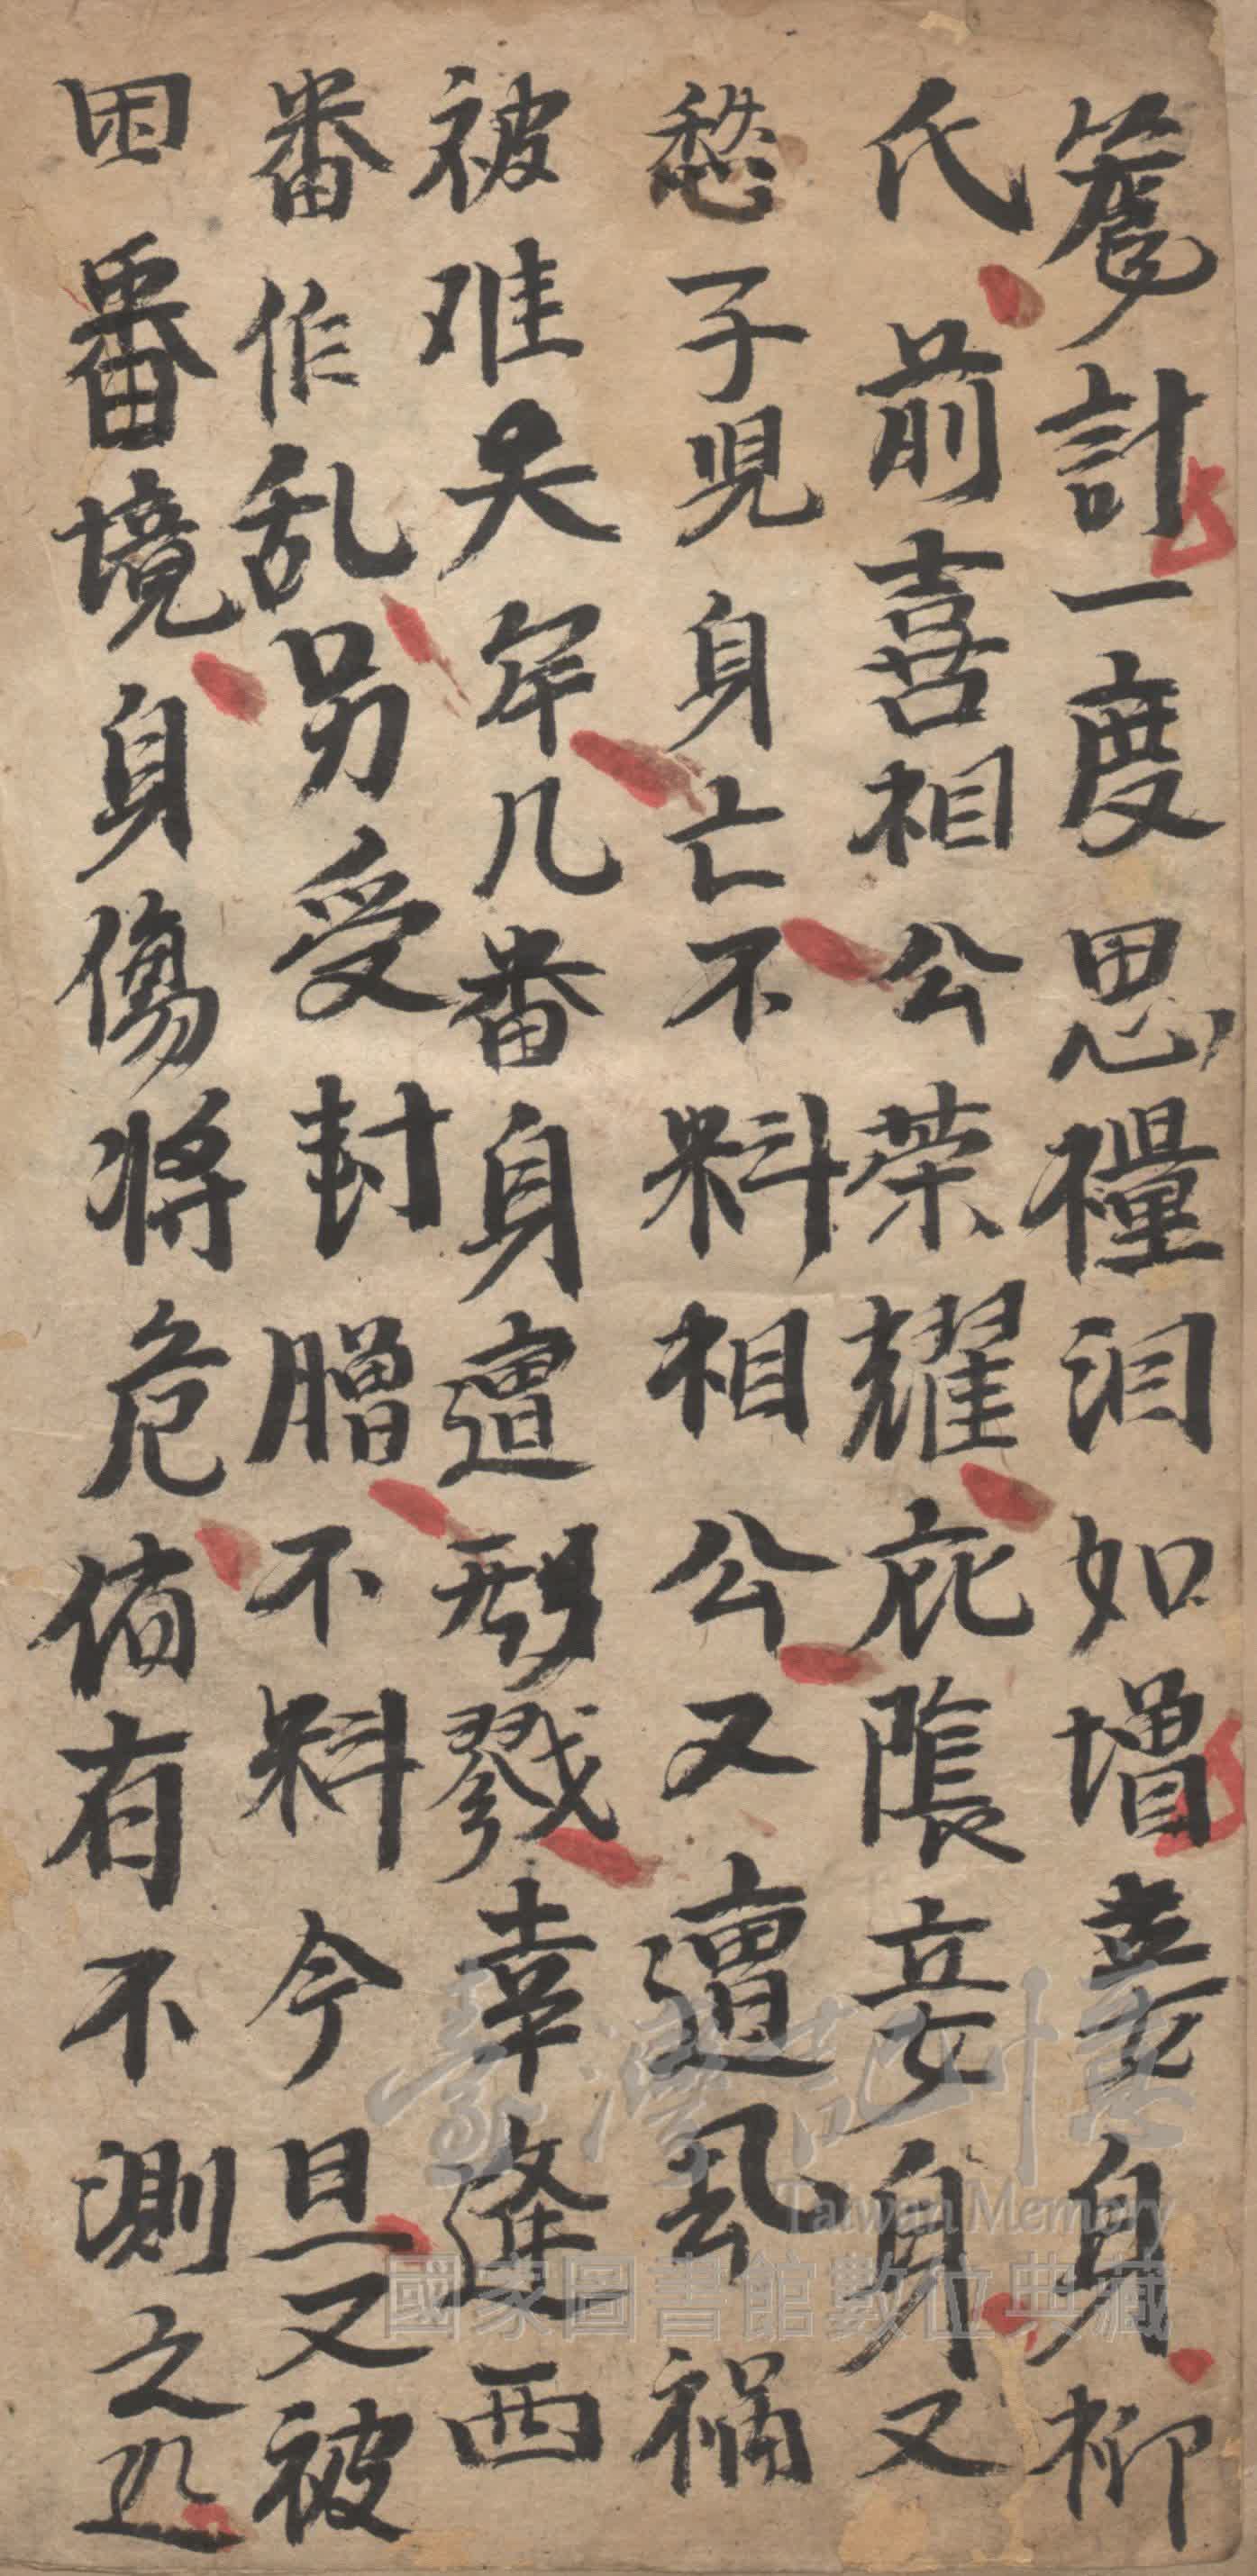 計一度思量泪如增妾身柳
氏前喜相公荣耀庇䕃妾身又
愁子児身亡不料相公又遭風禍
被难失年几番身遭刑戮幸逢西
番作乱另受封贈不料今旦又被
困番境身傷将危倘有不測之処
臺灣記憶
Taiwan Memory
國家圖書館數位典藏